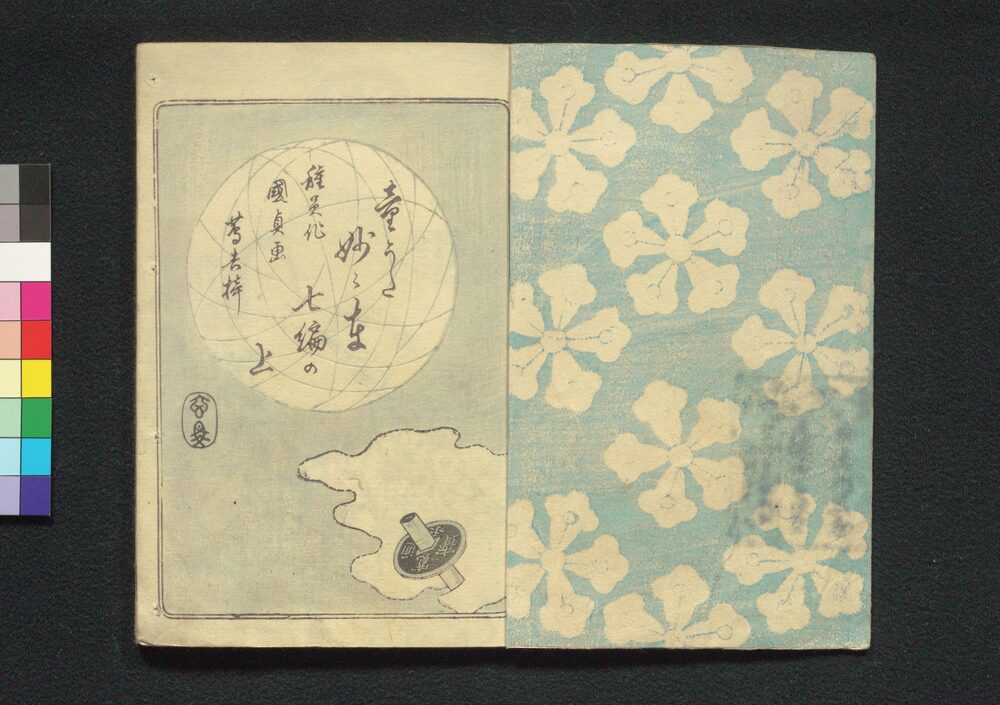 童うた
妙々車
七編の
上
種員作
國貞画
蔦吉梓